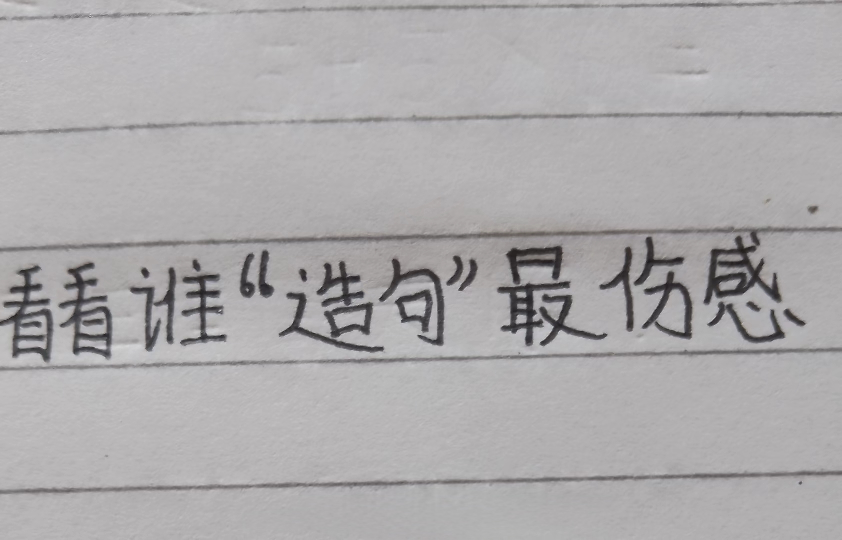 看看谁“造句”最伤感